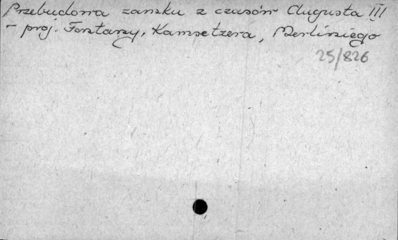 Przebudowa zamku z czasów Augusta III
- proj. Fontany, Kamsetzera, Merliniego
25/826